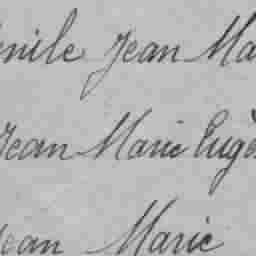 Jean Ma
Jean Marie Eugè
Jean Marie